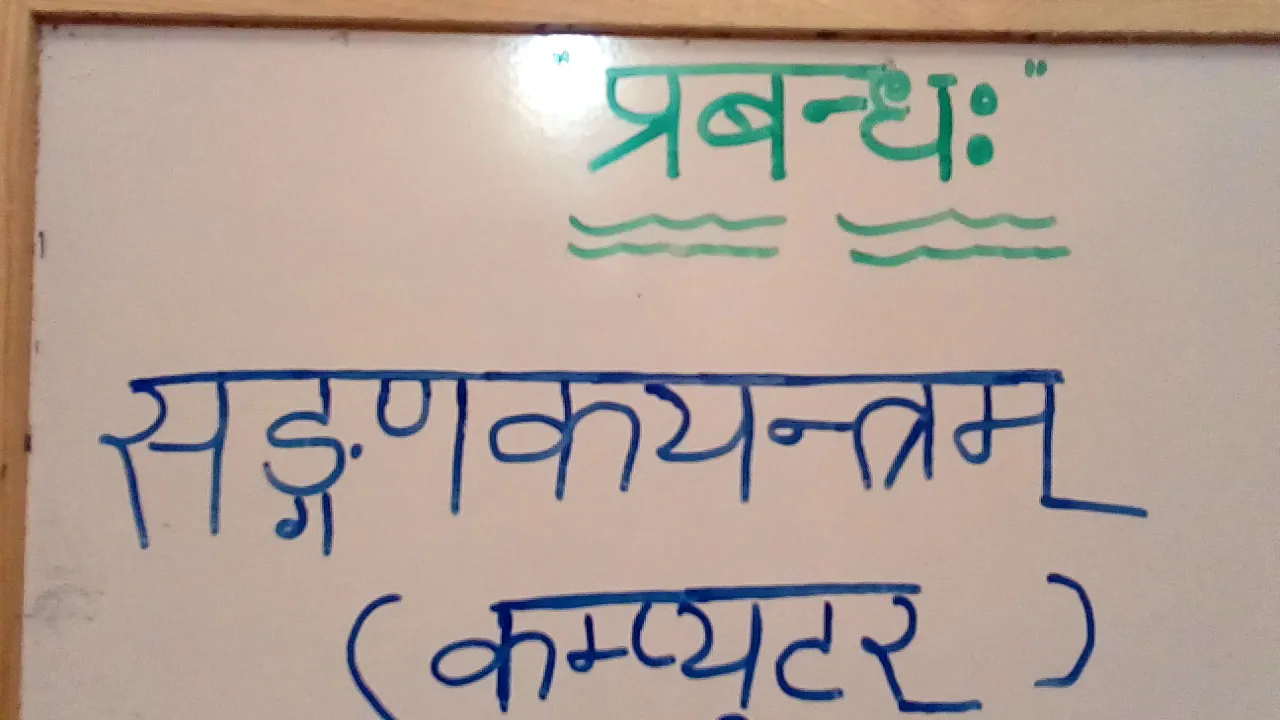 "प्रबन्धः"
सङ्गणकयन्त्रम्
(कम्प्युटर)